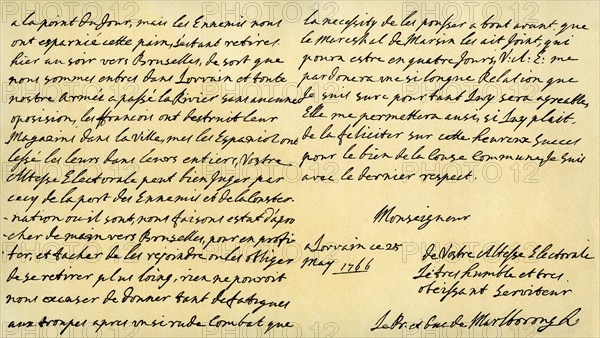 a la point du Jour, mais les Ennemis nous
ont esparnie cette pain, s'estant retires
hier au soir vers Bruselles, de sort que
nous sommes entres dans Lovvain et toute
nostre Armée a passé la Rivier sans aucune
oposision, les francois ont destruit leur
Magazins dans la Ville, mes les Espaniol ont
lessé les leurs dans leurs entiers, Vostre
Altesse Electorale peut bien Juger par
cecy de la port des Ennemis et de la Conster
nation ou il sont, nous faisons estat d'apro
cher de main vers Bruselles, pour en profi
ter, et tacher de les rejondre ou les obliger
de se retirer plus loing, rien ne pouvoit
nous excuser de donner tant de fatigues
aux troupes apres un si rude Combat que
la necessity de les pousser a bout avant que
le Mareshal de Marsin les ait Joint, qui
poura estre en quatre Jours, V: el: E: me
pardonera une si longue Relation que
Je suis sure pour tant Luy sera agreable,
Elle me permettera aussi, si Luy plait,
de la feliciter sur cette heureux Succes
pour le bien de la Couse Commune, Je suis
avec le dernier respect.
Monseigneur
a Lovvain ce 25
May 1706
de Vostre Altesse Electorale
Le tres humble et tres
obeissant Serviteur
Le Pr. et Duc de Marlborough